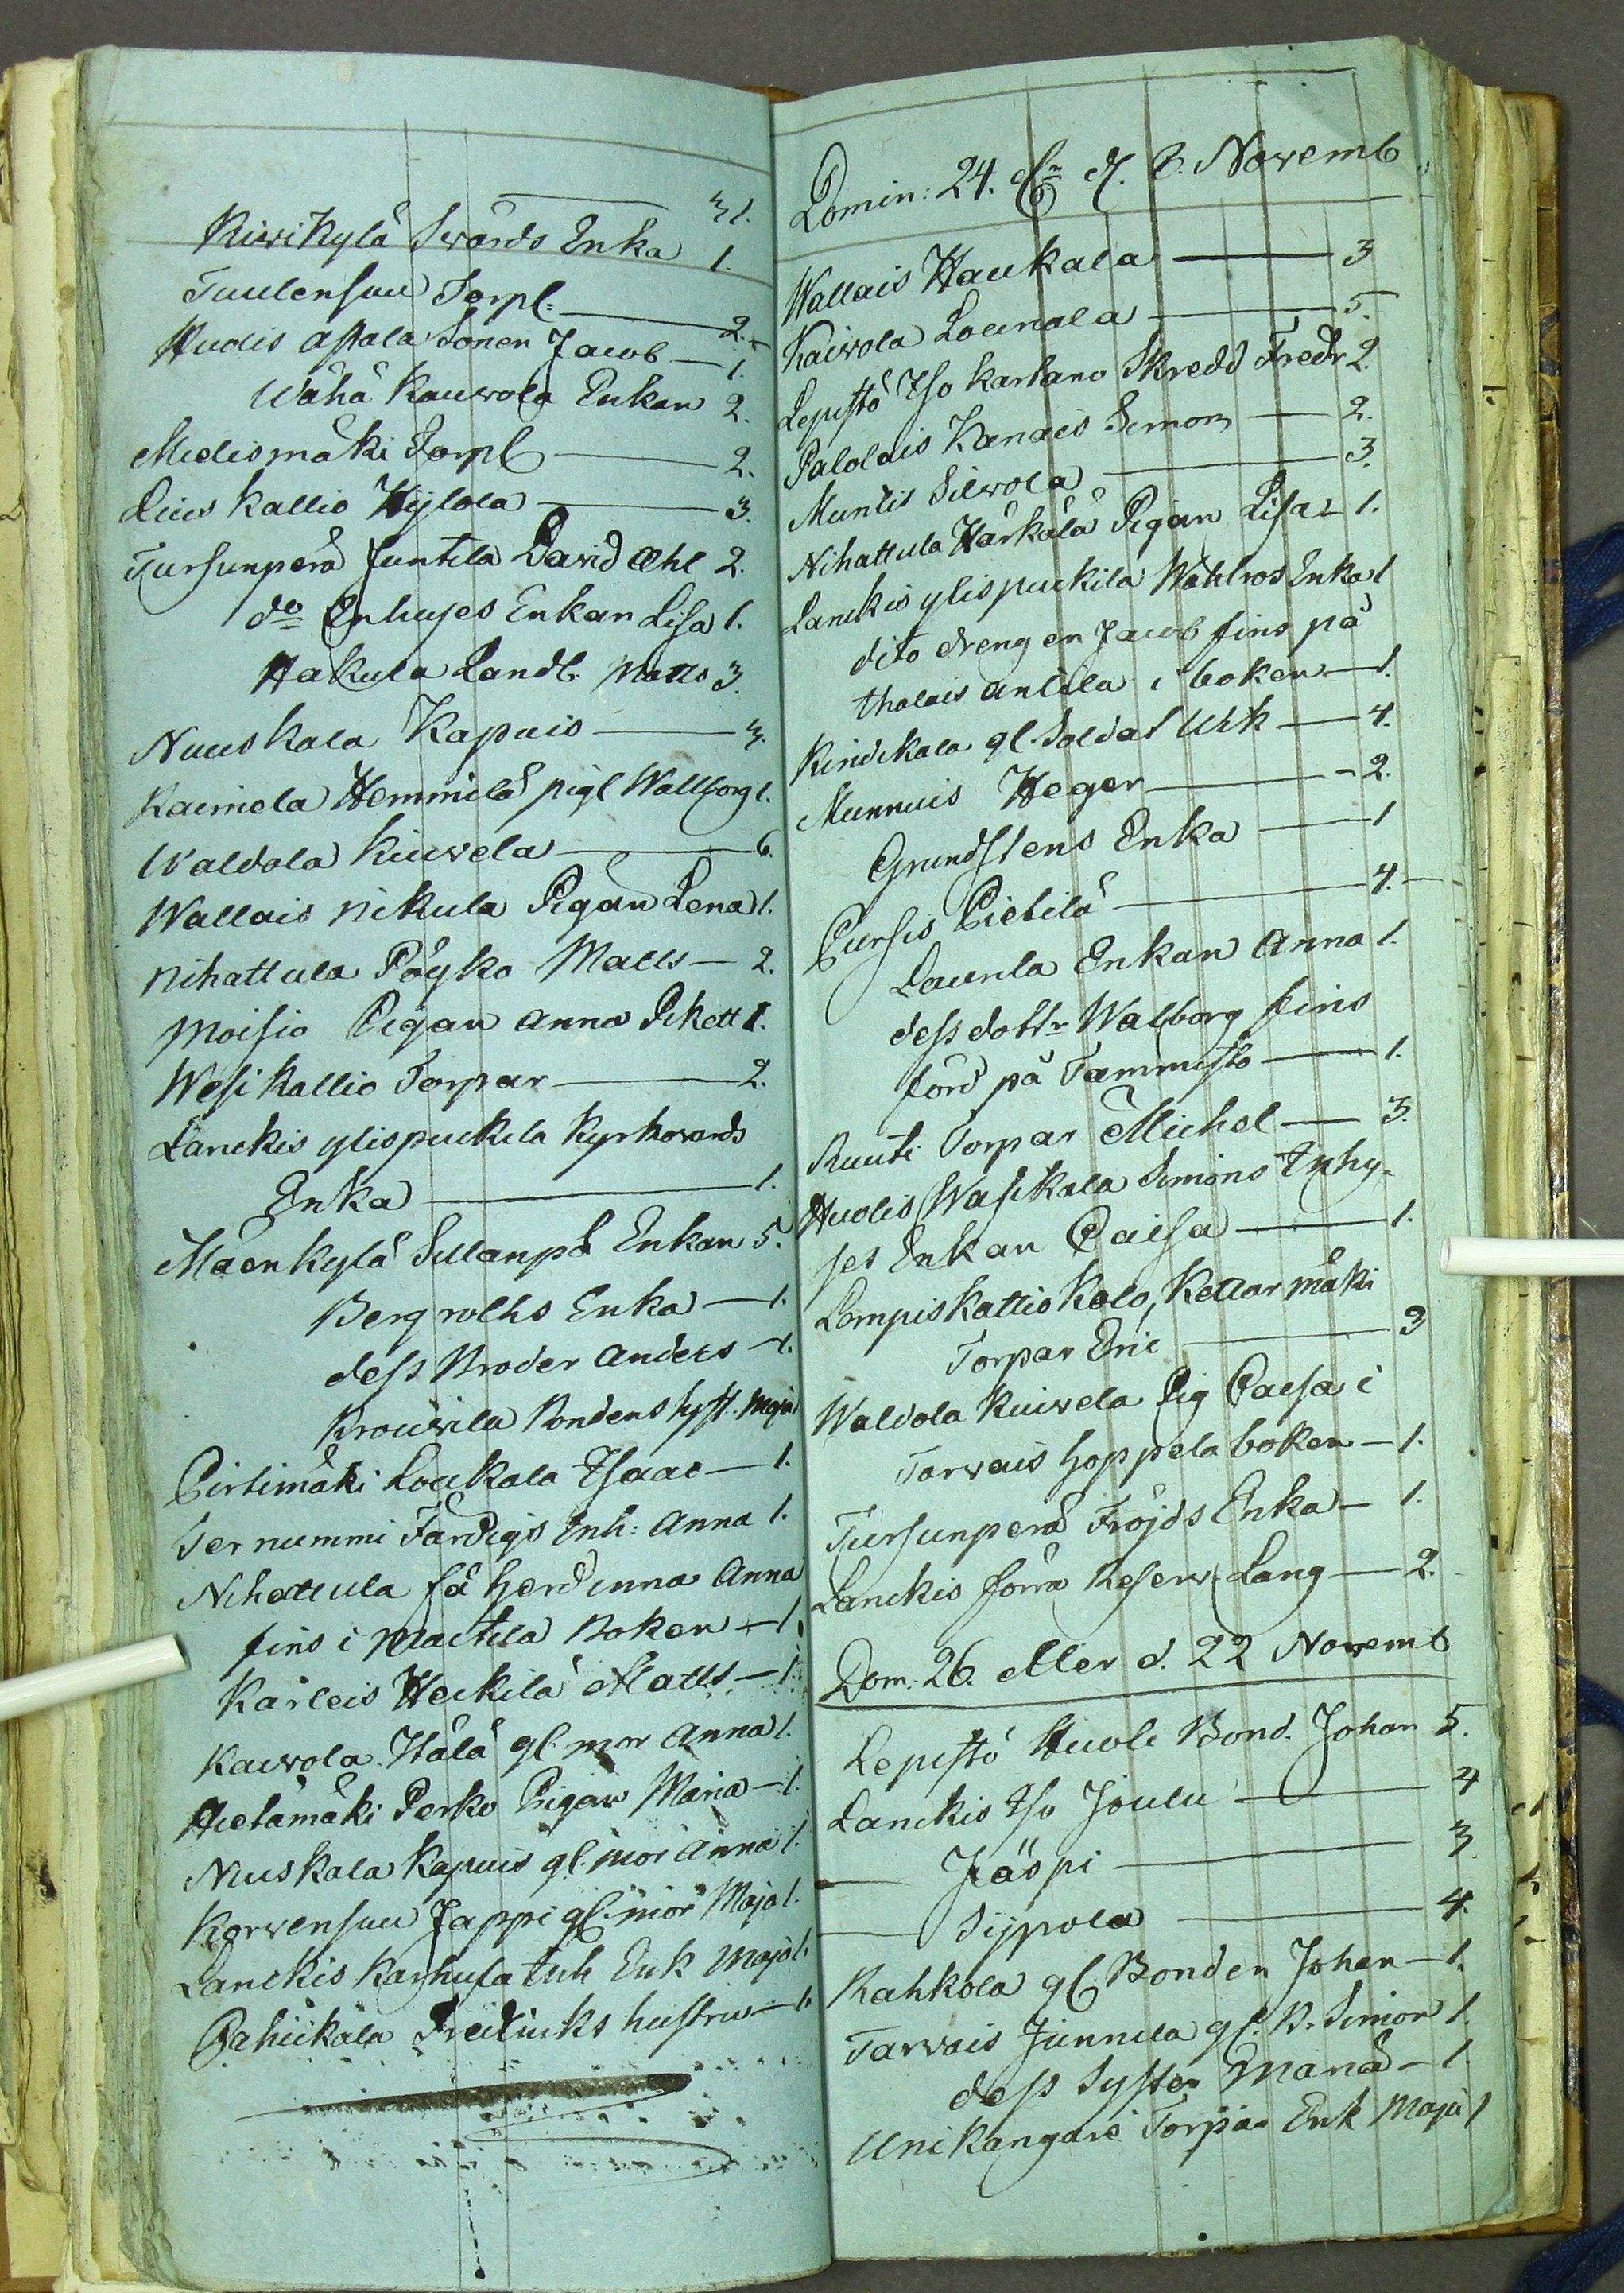 31.
Kiwikylä Swärds Enka 1.
Tuulensuu Torp. 2.
Hudis Astala Sonen Jacob 1.
Wähä Kauwola Enkan 2.
Medismäki Torp 2.
Lius Kallio Hijlola 3.
Tursunperä Juntila David 2.
do Inhyses Enkan Lisa 1.
Hakula Landb. Matts 3.
Nuuskala Kapuis 3.
Kaimola Hemmilä pigl Wallborg 1.
Waldola Kuiwela 6.
Wallais Nikula Pigan Lena 1.
Nihattula Pöyko Matts 2.
Moisio Pigan Anna 1.
Wesikallio Torpar 2.
Lanckis ylispuckila Kyrkovards
Enka 1.
Mäenkylä Sillanpä Enkan 5.
Bergroths Enka 1.
dess Broder Anders 1.
Krouvila Bondens hust. Maja
Pirtimäki Loukala Isaac 1.
Ter nummi Färdigs Inh: Anna 1.
Nihattula få herdinna Anna
fins i Mactila Boken 1.
Karleis Heikilä Matts 1.
Kaivola Hälä gl. mor Anna 1.
Hietämäki Perko Pigan Maria 1.
Nuuskala Kapuis gl. mor Anna 1.
Korwensuu Jappi gl. mor Maja 1.
Lanckis Karhusa Enk Maja 1.
Pahikala Fredricks hustru 1.
Domin: 24. d. 8. Novemb
Wallais Haukala 3
Kaiwola Lounala 5.
Lepistö Iso kartano Skredd Fredr 2.
Palolais Kanais Simon 2.
Muntis Silwola 3.
Nihattula Härkälä Pigan Lisa 1.
Lanckis ylispuckila Wahlros Enka 1
dito drengen Jacob fins på
thalais Antila i boken 1.
Rindikala gl Soldat Urk 4.
Munnuis Heger 2.
Grundstens Enka 1
Pursis Pietilä 4.
Launla Enkan Anna 1.
dess dottr Walborg fins
förd på Tammisto 1.
Ruuti Torpar Michel 3.
Huolis Wasikala Simons Inhy-
ses Enkan Caisa 1.
Lempis Kattiskalo, Kettarmäki
Torpar Eric 3
Waldola Kuiwela Pig Caisa i
Tarvais hoppela boken 1.
Tursunperä Fröjds Enka 1.
Lanckis förra Reserv Lang 2.
Dom: 26. eller d. 22 Novemb
Lepistö Huoli Bond. Johan 5.
Lanckis Iso Joulu 4
Jäspi 3
Sijpola 4.
Rahkola gl. Bonden Johan 1.
Tarvais Junnila gl. B. Simon 1.
dess Syster Maria 1
Unikangare Torpar Enk Maja 1